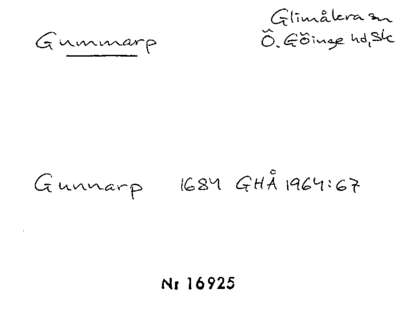 Gummarp
Glimåkra sn
Ö. Göinge hd, Sk
Gunnarp 1684 GHÅ 1964:67
Nr 16925